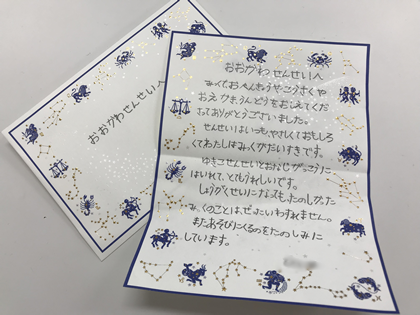 おおがわせんせいへ
おおがわせんせいへ
みっくでおべんきょうやこうさくや
おえかきうんどうをおしえてくだ
さってありがとうございました。
せんせいはいつもやさしくておもしろ
くてわたしはみっくがだいすきです。
ゆきこせんせいとおなじがっこうに
はいれて、とてもうれしいです。
しょうがくせいになってもたのしかった
みっくのことは、ぜったいわすれません。
またあそびにくるのをたのしみに
しています。